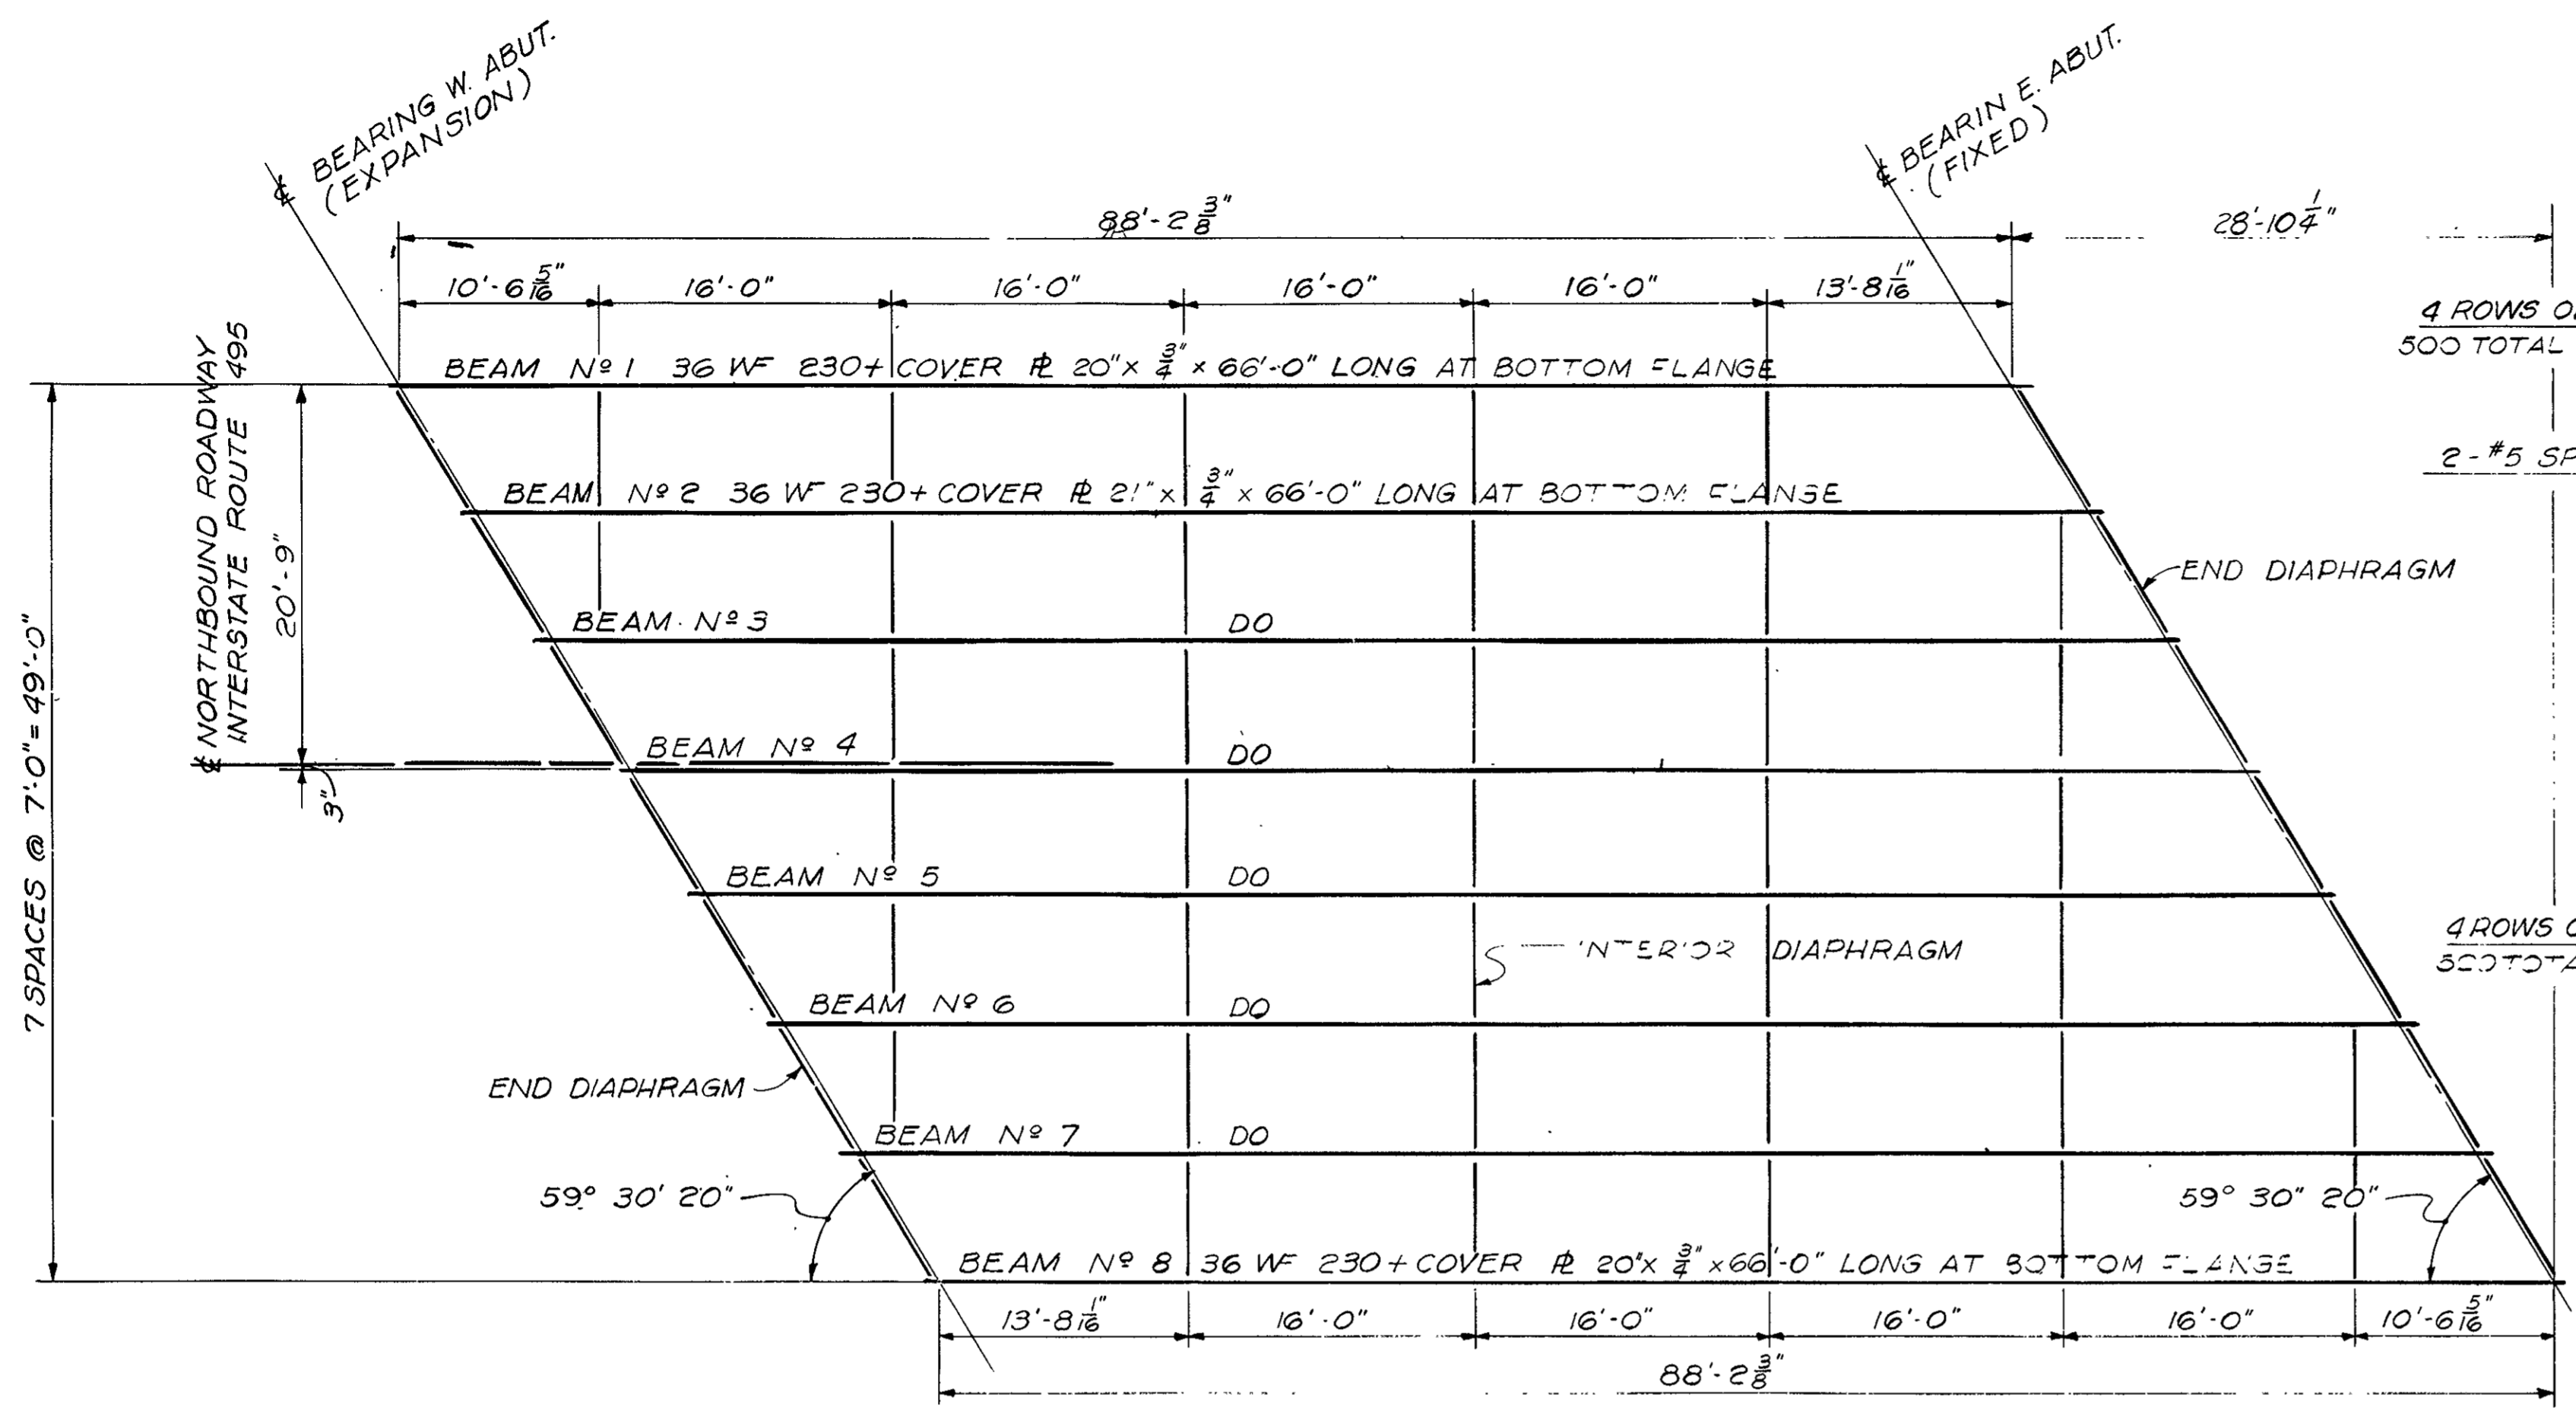 ℄ BEARING W. ABUT.
(EXPANSION)
℄ BEARIN E. ABUT.
(FIXED)
88'-2 3/8"
28'-10 1/4"
10'-6 5/16"
16'-0"
16'-0"
16'-0"
16'-0"
13'-8 1/16"
4 ROWS
500 TOTAL
℄ NORTHBOUND ROADWAY
INTERSTATE ROUTE 495
20'-9"
3"
7 SPACES @ 7'-0" = 49'-0"
BEAM Nº 1 36 WF 230 + COVER ℞ 20" x 3/4" x 66'-0" LONG AT BOTTOM FLANGE
2-#5 SP
BEAM Nº 2 36 WF 230 + COVER ℞ 21" x 3/4" x 66'-0" LONG AT BOTTOM FLANGE
END DIAPHRAGM
BEAM Nº 3 DO
BEAM Nº 4 DO
BEAM Nº 5 DO
INTERIOR DIAPHRAGM
4 ROWS
BEAM Nº 6 DO
END DIAPHRAGM
BEAM Nº 7 DO
59° 30' 20"
59° 30" 20"
BEAM Nº 8 36 WF 230 + COVER ℞ 20" x 3/4" x 66'-0" LONG AT BOTTOM FLANGE
13'-8 1/16"
16'-0"
16'-0"
16'-0"
16'-0"
10'-6 5/16"
88'-2 3/8"